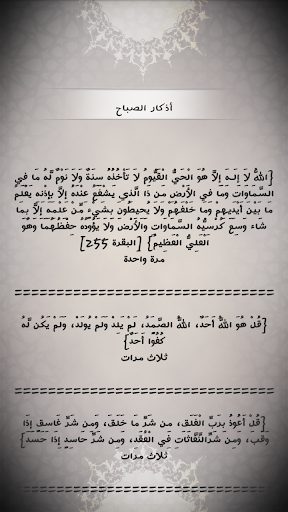 أذكار الصباح
{اللهُ لاَ إِلَـهَ إِلاَّ هُوَ الْحَيُّ الْقَيُّومُ لاَ تَأْخُذُهُ سِنَةٌ وَلاَ نَوْمٌ لَّهُ مَا فِي
السَّمَاوَاتِ وَمَا فِي الأَرْضِ مَن ذَا الَّذِي يَشْفَعُ عِنْدَهُ إِلاَّ بِإِذْنِهِ يَعْلَمُ
مَا بَيْنَ أَيْدِيهِمْ وَمَا خَلْفَهُمْ وَلاَ يُحِيطُونَ بِشَيْءٍ مِّنْ عِلْمِهِ إِلاَّ بِمَا
شَاء وَسِعَ كُرْسِيُّهُ السَّمَاوَاتِ وَالأَرْضَ وَلاَ يَؤُودُهُ حِفْظُهُمَا وَهُوَ
الْعَلِيُّ الْعَظِيمُ} [البقرة 255]
مرة واحدة
{قُلْ هُوَ اللهُ أَحَدٌ، اللهُ الصَّمَدُ، لَمْ يَلِدْ وَلَمْ يُولَدْ، وَلَمْ يَكُن لَّهُ
كُفُوًا أَحَدٌ}
ثلاث مرات
{قُلْ أَعُوذُ بِرَبِّ الْفَلَقِ، مِن شَرِّ مَا خَلَقَ، وَمِن شَرِّ غَاسِقٍ إِذَا
وَقَبَ، وَمِن شَرِّ النَّفَّاثَاتِ فِي الْعُقَدِ، وَمِن شَرِّ حَاسِدٍ إِذَا حَسَدَ}
ثلاث مرات